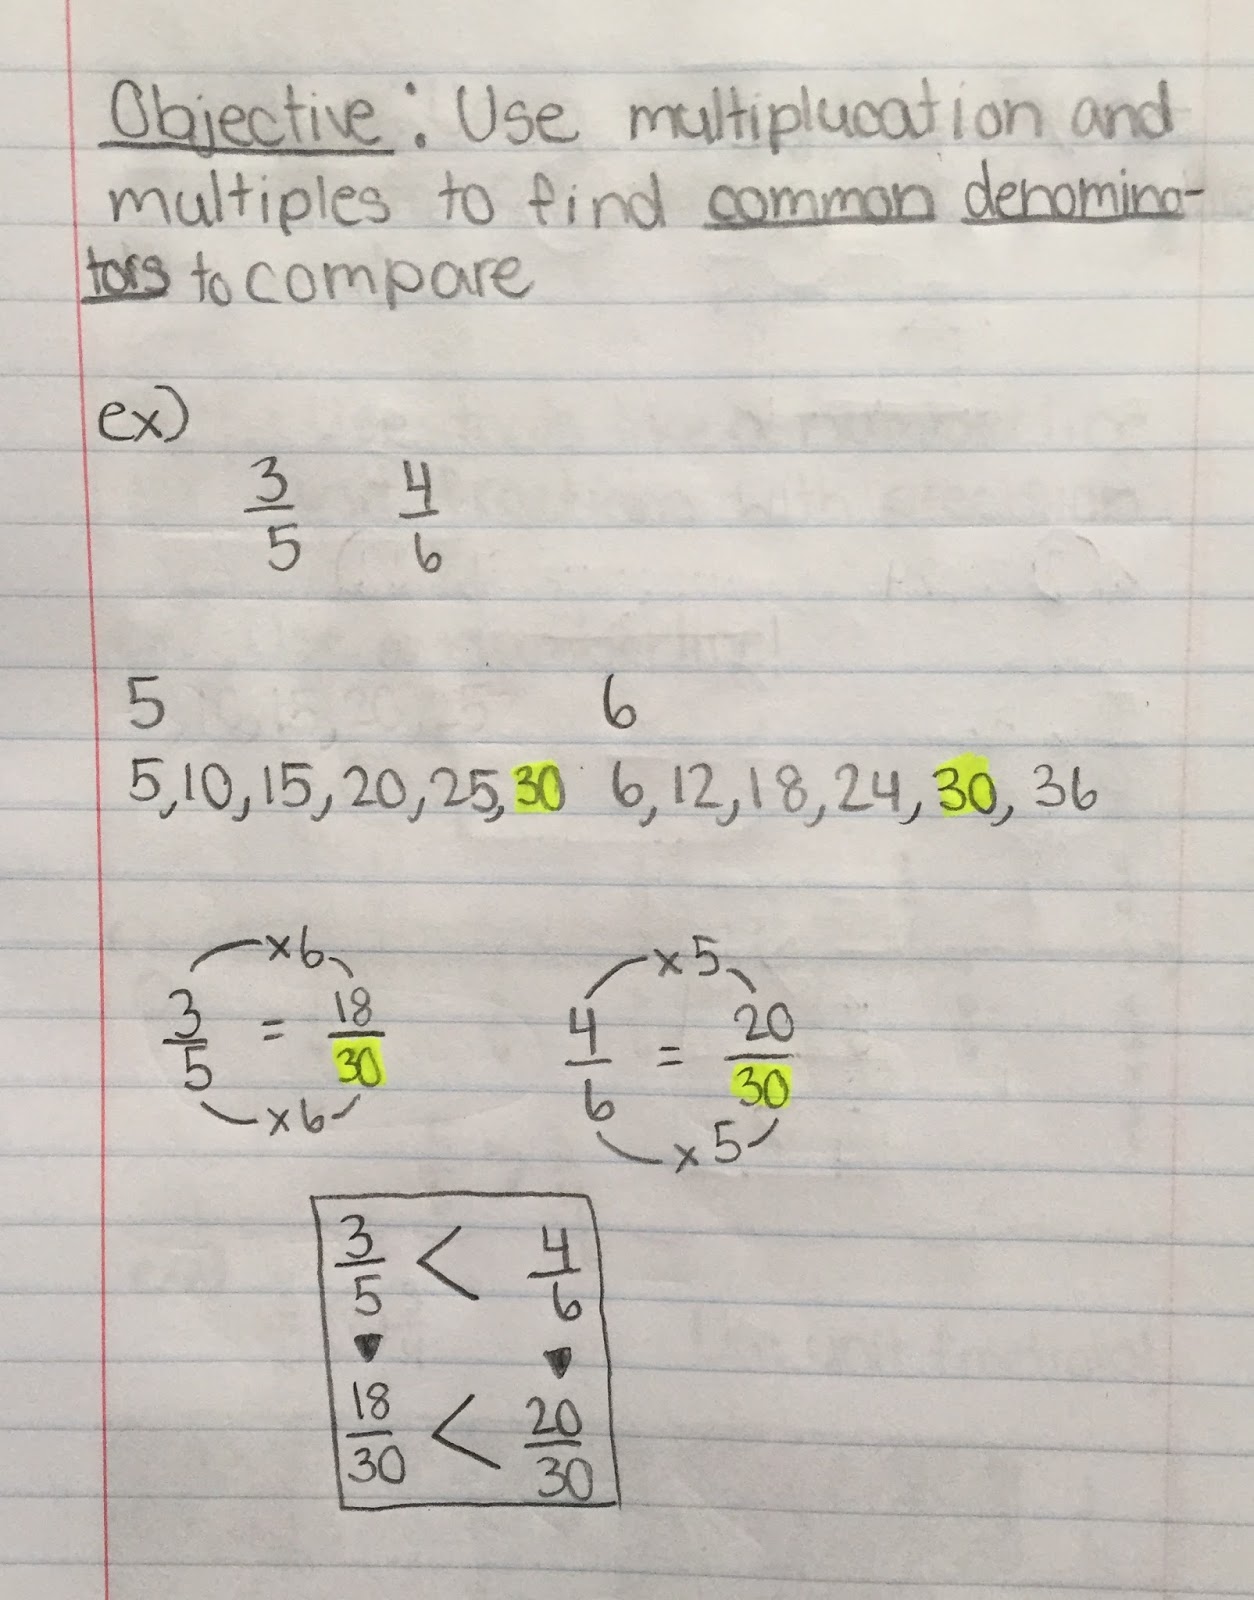 Objective: Use multiplucation and
multiples to find common denomina-
tors to compare
ex)
3/5 4/6
5 6
5, 10, 15, 20, 25, 30 6, 12, 18, 24, 30, 36
×6 ×5
3/5 = 18/30 4/6 = 20/30
×6 ×5
3/5 < 4/6
18/30 < 20/30